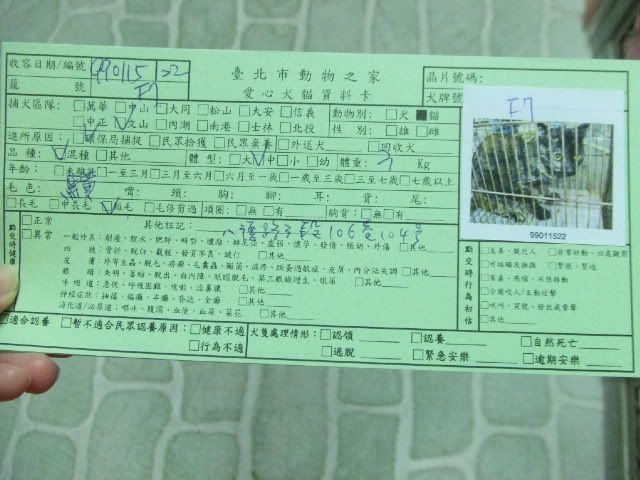 收容日期/編號 990115 22
籠 號 E7
臺北市動物之家
愛心犬貓資料卡
晶片號碼:
犬牌號
捕犬區隊: □萬華 □中山 □大同 □松山 □大安 □信義 動物別: □犬 ■貓
□中正 ☑文山 □內湖 □南港 □士林 □北投 性 別: □雄 □雌
進所原因: □環保局捕捉 □民眾拾獲 □民眾棄養 □外送犬 □回收犬
品 種: ☑混種 □其他 體 型: □大 ☑中 □小 □幼 體重: 3 Kg
年齡: □未離乳 □一至三月 □三月至六月 □六月至一歲 □一歲至三歲 □三至七歲 □七歲以上
毛 色: 黑黃 嘴: 頭: 胸: 腳: 耳: 背: 尾:
□長毛 □中長毛 ☑短毛 □毛修剪過 項圈: □無 □有 胸背: □無 □有
E7
99011522
點交時健康
□正常
□異常
其他註記: 段106巷104号
一般外表: □其他
四 肢: 骨折、脫臼、截肢、發育不良、跛行 □其他
皮 膚: 外寄生蟲、脫毛、疥癬、毛囊蟲、黴菌、濕疹、跳蚤過敏症、皮屑、內分泌失調 □其他
眼 睛: 失明、萎縮、脫出、白內障、眼瞼脫毛、第三眼瞼增生、眼屎 □其他
呼吸道: 急促、呼吸困難、咳嗽、流鼻膿 □其他
神經症狀: 抽搐、偏癱、半癱、昏迷、全癱 □其他
消化道/泌尿道: 嘔吐、腹瀉、血便、血尿、菜花 □其他
點交時行為初估
□友善、親近人 □非常好動、四處觀察
□可碰觸及撫摸 □緊張、緊迫
□害羞、畏縮、不想移動
□企圖咬人/主動攻擊
□吠叫、哭號、發出威聲
□其他
□適合認養 □暫不適合民眾認養原因: □健康不適
□行為不適
犬隻處理情形: □認領 □認養 □自然死亡
□逃脫 □緊急安樂 □逾期安樂